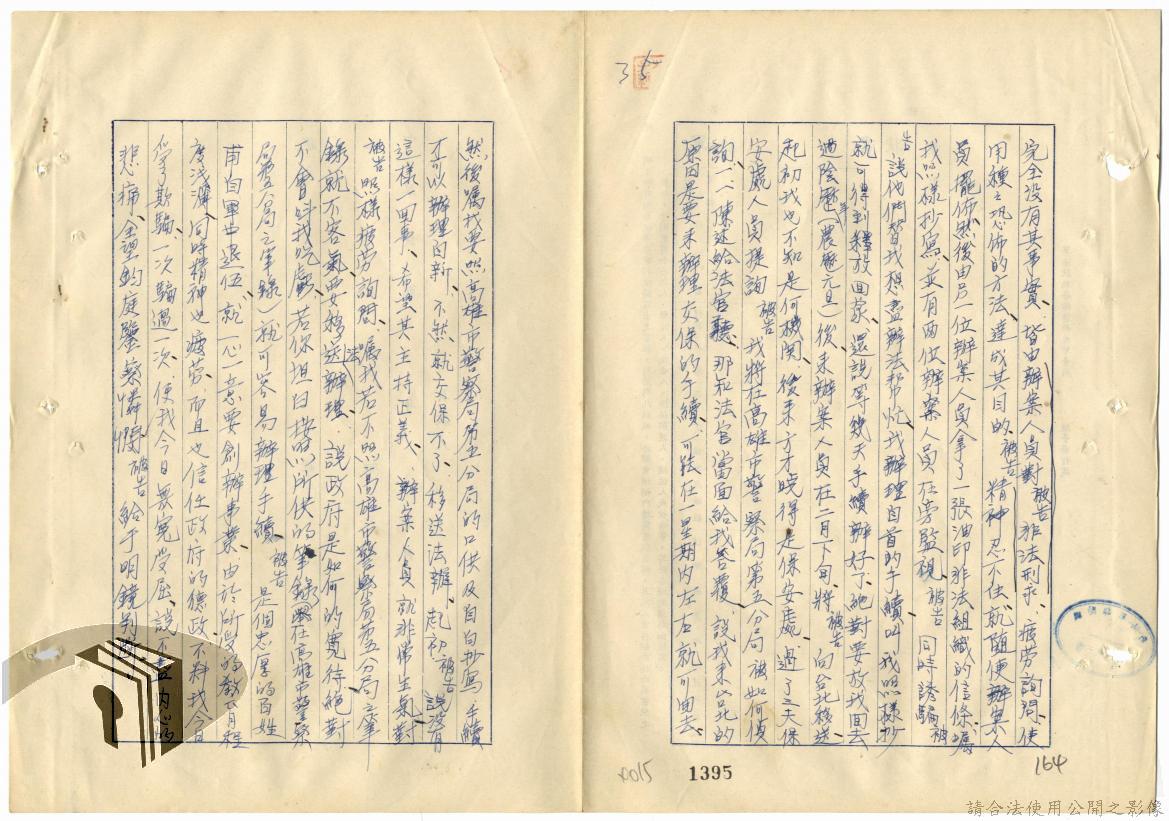 35
完全没有其事實、皆由辦案人員對被告非法刑求、疲劳詢問、使
用種之恐佈的方法、達成其目的、被告精神忍不住、就隨便辦案人
員擺佈、然後由另一位辦案人員拿了一張油印非法組織的信條、嘱
我照樣抄寫、並有两位辦案人員在旁監視、被告同時誘騙被
告、說他們替我想盡辦法帮忙、我辦理自首的手續、叫我照樣抄
就可得到釋放回家、還説等幾天手續辦好了、絶對要放我回去
過陰歷年（農歷元旦）後来辦案人員在二月下旬、將被告向台北移送
起初我也不知是何機関、後来方才晓得是保安處、過了三天保
安處人員提詢被告我將在高雄市警察局第五分局被如何偵
詢、一一陳述給法官聽、那知法官當面給我答覆說我来台北的
原因是要来辦理交保的手續、可能在一星期内左右就可回去、
然後嘱我要照高雄市警察局第五分局的口供及自白抄寫手續
才可以辦理自新、不然就交保不了、移送法辦、起初被告說没有
這樣一回事、希望其主持正義、辦案人員就非常生氣對
被告照樣疲劳詢問、嘱我若不照高雄市警察局第五分局之筆
錄就不客氣、而要移送法辦理、說政府是如何的寬待絕對
不會叫我吃虧、若你坦白按照所供的筆錄（在高雄市警察
局第五分局之筆錄）就可容易辦理手續、被告是個忠厚的百姓
甫自軍中退伍、就一心一意要創辦事業、由於所受的教育程
度浅薄、同時精神也疲劳、而且也信任政府的德政、不料我今日
受了欺騙、一次騙過一次、使我今日無冤受屈、説不盡内心
悲痛、全望鈞庭鑒察憐憫被告給于明鏡判
0015
1395
164
請合法使用公開之影像